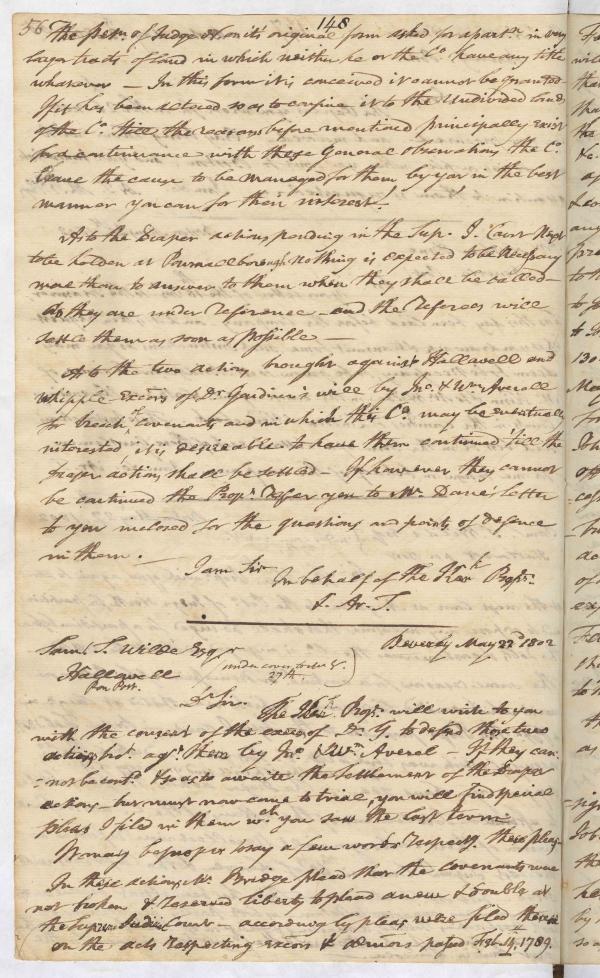 56 148
The petn. of Judge in its original form asked for a partn. in very
larger tracts of land in which neither he or the Co. have any title
whatever — In this form it is conceived it cannot be granted —
If it has been altered so as to confine it to the Undivided lands
of the Co. still the reasons before mentioned principally exist
for a continuance with these General observations the Co.
leave the cause to be managed for them by you in the best
manner you can for their interest.
As to the Draper actions pending in the Sup. J. Court Next
to be holden at Pownalborough, nothing is expected to be Necessary
more than to answer to them when they shall be called —
as they are under reference — and the referees will
settle them as soon as possible —
As to the two actions brought against Hallowell and
Whipple Excors of Dr. Gardiner's will by Jno. & Wm. Averall
for breach of Covenants and in which this Co. may be eventually
interested it is desireable to have them continued till the
Draper actions shall be settled — If however they cannot
be continued the Propr. Refer you to Mr. Dane's letter
to you inclosed for the questions and points of defence
in them. —
I am Sir
In behalf of the Propr.
Saml. S. Wilde Esqr
Beverly May 22d 1802
Hallowell
under cover
27th
Per Post.
Dr Sir.
The Propr. will write to you
with the consent of the excors of Dr. G. to defend those two
actions bro't agt. them by Jno. & Wm. Averel — If they can-
=not be contd. & so as to awaite the settlement of the Draper
actions — but must now come to trial, you will find special
pleas I filed in them wch. you saw the last term
It may be proper to say a few words respectg. these pleas
In these actions Mr. Bridge plead that the covenants were
not broken & reserved liberty to plead anew & double at
the Supreme Court — accordingly pleas were filed there
on the acts respecting excors & admors passed Feb. 14, 1789.